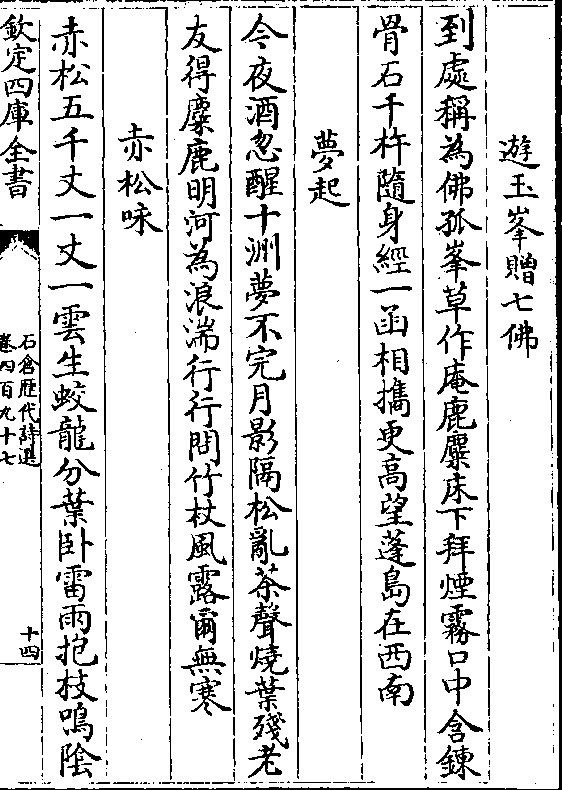 遊玉峯贈七佛
到處稱為佛孤峯草作庵鹿麋床下拜煙霧口中含鍊
骨石千杵隨身經一函相攜更高望蓬島在西南
夢起
今夜酒忽醒十洲夢不完月影隔松亂茶聲燒葉殘老
友得麋鹿明河為浪湍行行問竹杖風露爾無寒
赤松咏
赤松五千丈一丈一雲生蛟龍分葉卧雷雨抱枝鳴陰
欽定四庫全書
石倉歴代詩選
卷四百九十七
十四